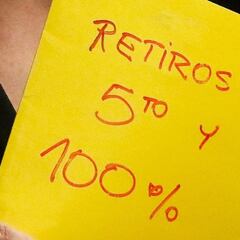 RETIROS
5TO Y
100%